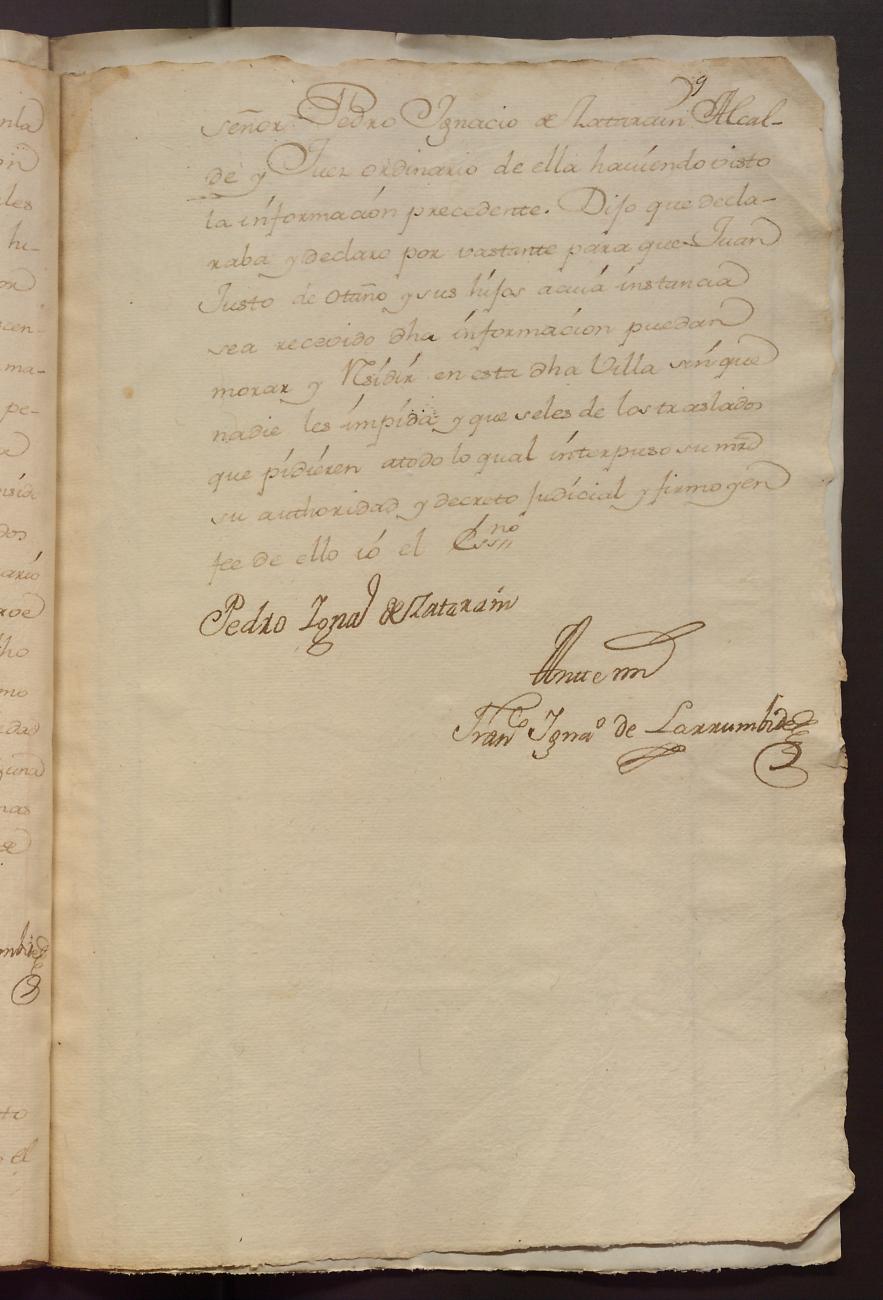 9
señor Pedro Ignacio de Zatarain Alcal-
de y Juez ordinario de ella haviendo visto
la información precedente. Dijo que decla-
raba y declaro por vastante para que Juan
Justo de Otaño y sus hijos acuia instancia
sea recevido dha informacion puedan
morar y Residir en esta dha Villa sin que
nadie les impida y que seles de los traslados
que pidieren atodo lo qual interpuso su mrd
su authoridad y decreto Judicial y firmo y en
fee de ello ió el Essno
Pedro Igna de Zatarain
Antemi
Franco Ignao de Larrumbide